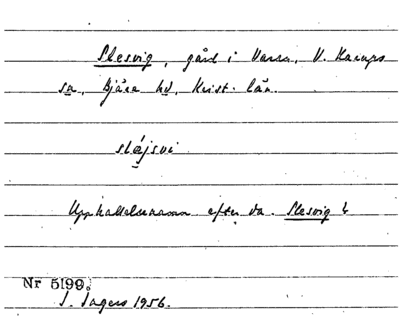 Slesvig, gård i Varan, V. Karups
sn, Bjäre hd, Krist. län.
slájsvi
Uppkallelsenamn efter da. Slesvig
Nr 5199.
I. Ingers 1956.